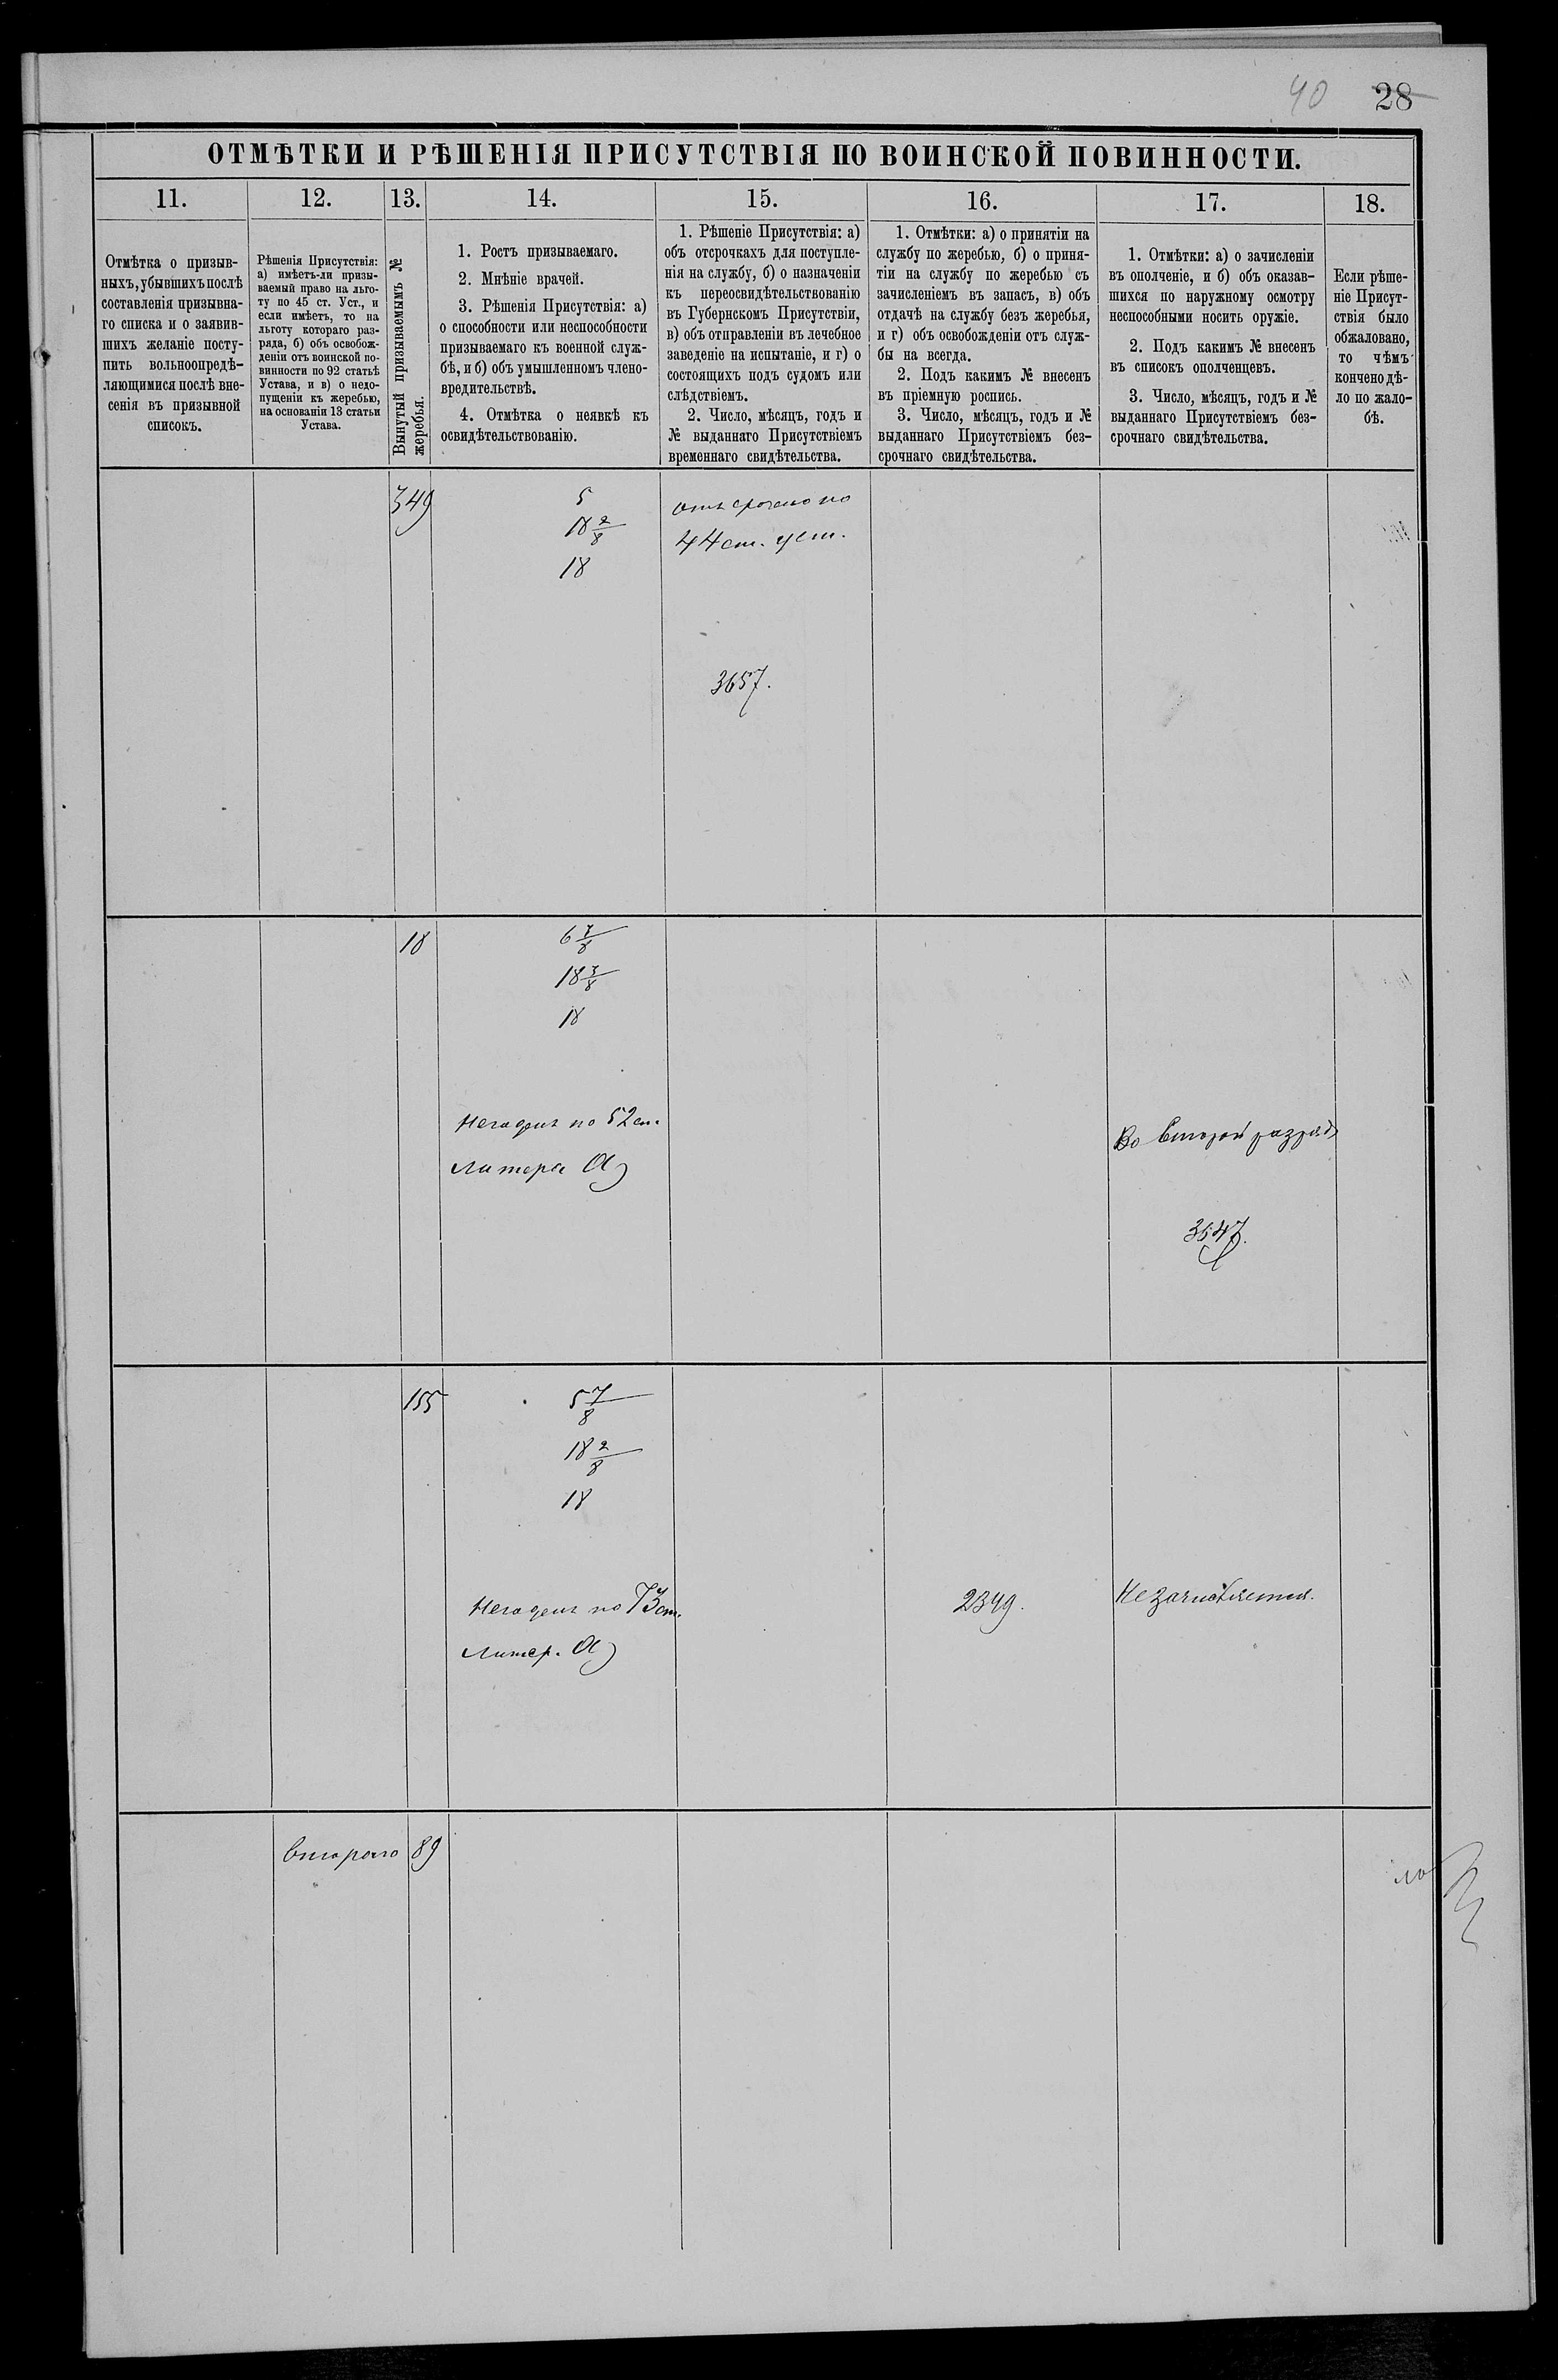 40 28
ОТМѢТКИ И РѢШЕНІЯ ПРИСУТСТВІЯ ПО ВОИНСКОЙ ПОВИННОСТИ.
11.
Отмѣтка о призыв-
ныхъ, убывшихъ послѣ
составленія призывна-
го списка и о заявив-
шихъ желаніе посту-
пить вольноопредѣ-
ляющимися послѣ вне-
сенія въ призывной
списокъ.
12.
Рѣшенія Присутствія:
а) имѣетъ-ли призы-
ваемый право на льго-
ту по 45 ст. Уст., и
если имѣетъ, то на
льготу котораго раз-
ряда, б) объ освобож-
деніи отъ воинской по-
винности по 92 статьѣ
Устава, и в) о недо-
пущеніи къ жеребью,
на основаніи 13 статьи
Устава.
13.
Вынутый призываемымъ №
жеребья.
14.
1. Ростъ призываемаго.
2. Мнѣніе врачей.
3. Рѣшенія Присутствія: а)
о способности или неспособности
призываемаго къ военной служ-
бѣ, и б) объ умышленномъ члено-
вредительствѣ.
4. Отмѣтка о неявкѣ къ
освидѣтельствованію.
15.
1. Рѣшеніе Присутствія: а)
объ отсрочкахъ для поступле-
нія на службу, б) о назначеніи
къ переосвидѣтельствованію
въ Губернскомъ Присутствіи,
в) объ отправленіи въ лечебное
заведеніе на испытаніе, и г) о
состоящихъ подъ судомъ или
слѣдствіемъ.
2. Число, мѣсяцъ, годъ и
№ выданнаго Присутствіемъ
временнаго свидѣтельства.
16.
1. Отмѣтки: а) о принятіи на
службу по жеребью, б) о приня-
тіи на службу по жеребью съ
зачисленіемъ въ запасъ, в) объ
отдачѣ на службу безъ жеребья,
и г) объ освобожденіи отъ служ-
бы на всегда.
2. Подъ какимъ № внесенъ
въ пріемную роспись.
3. Число, мѣсяцъ, годъ и №
выданнаго Присутствіемъ без-
срочнаго свидѣтельства.
17.
1. Отмѣтки: а) о зачисленіи
въ ополченіе, и б) объ оказав-
шихся по наружному осмотру
неспособными носить оружіе.
2. Подъ какимъ № внесенъ
въ списокъ ополченцевъ.
3. Число, мѣсяцъ, годъ и №
выданнаго Присутствіемъ без-
срочнаго свидѣтельства.
18.
Если рѣше-
ніе Присут-
ствія было
обжаловано,
то чѣмъ
кончено дѣ-
ло по жало-
бѣ.
349
5
18 2/8
18
отсрочено по
44 ст. уст.
3657.
18
6 7/8
18 3/8
18
Негоденъ по 52 ст.
литера А)
Во второй разрядъ
3647.
155
5 7/8
18 2/8
18
Негоденъ по 73 ст.
литер. А)
2349.
Незачисляется.
втораго 89